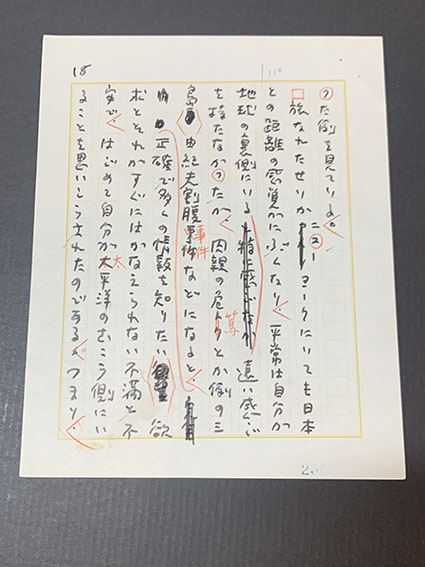 18
った例を見ている。
旅なれたせいかニューヨークにいても日本
との距離の感覚がにぶくなり、平常は自分が
地球の裏側にいる遠い感じ
を持たなかったが、肉親の危トクとか例の三
篤
島由紀夫割腹事件などになると、
事件
正確で多くの情報を知りたい欲
求とそれがすぐにはかなえられない不満と不
安で、はじめて自分が太平洋のむこう側にい
太
ることを思いしらされたのである。つまり、